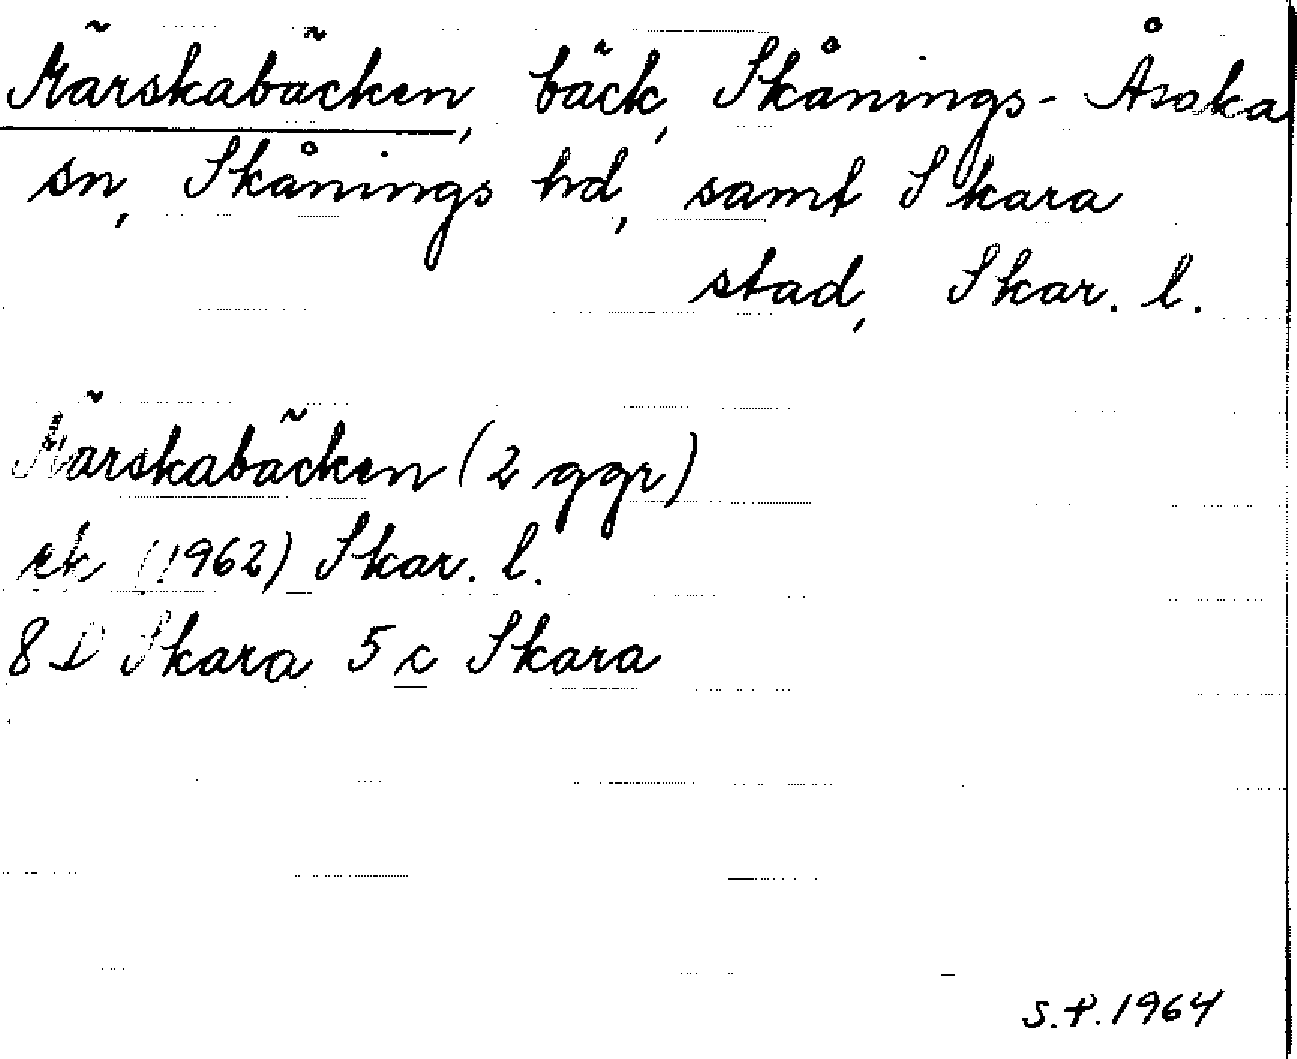 Märskabäcken, bäck, Skånings-Åsaka
sn, Skånings hd, samt Skara
stad, Skar. l.
Märskabäcken (2 ggr)
ek (1962) Skar. l.
8D Skara 5c Skara
S.P. 1964